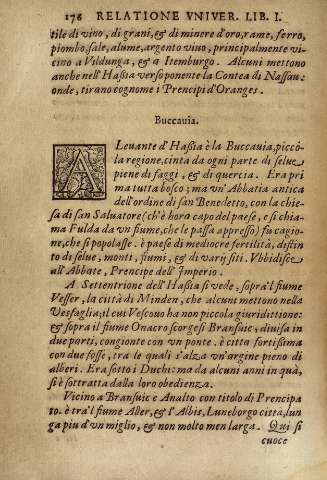 176 RELATIONE VNIVER. LIB. I.
tile di vino, di grani, & di minere d'oro, rame, ferro,
piombo, sale, alume, argento viuo, principalmente vi-
cino a Vildunga, & a Itemburgo. Alcuni mettono
anche nell'Haßia verso ponente la Contea di Nassau:
onde, tirano cognome i Prencipi d'Oranges.
Buccauia.
A Leuante d'Haßia è la Buccauia, picco-
la regione, cinta da ogni parte di selue
piene di faggi, & di quercia. Era pri
ma tutta bosco; ma vn'Abbatia antica
dell'ordine di san Benedetto, con la chie
sa di san Saluatore (ch'è hora capo del paese, e si chia
ma Fulda da vn fiume, che le passa appresso) fu cagio-
ne, che si popolasse. è paese di mediocre fertilità, distin
to di selue, monti, fiumi, & di varij siti. Vbbidisce
all'Abbate, Prencipe dell'Imperio.
A Settentrione dell'Haßia si vede, sopra'l fiume
Vesser, la città di Minden, che alcuni mettono nella
Vesfaglia; il cui Vescouo ha non piccola giuriditione:
& sopra il fiume Onacro scorgesi Bransuic, diuisa in
due parti, congionte con vn ponte. è citta fortißima
con due fosse, tra le quali s'alza vn'argine pieno di
alberi. Era sotto i Duchi: ma da alcuni anni in quà,
si è sottratta dalla loro obedienza.
Vicino a Bransuic e Analto con titolo di Prencipa
to. è tra'l fiume Aller, & l'Albis, Luneborgo città, lun
ga piu d'vn miglio, & non molto men larga. Qui si
cuoce